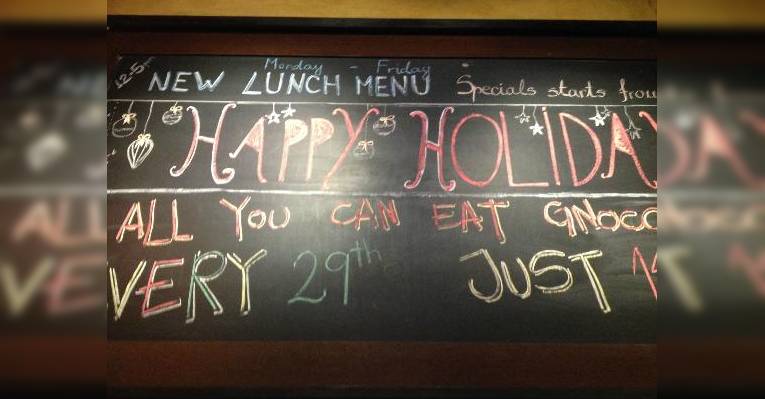 12-5pm
Monday - Friday
NEW LUNCH MENU Specials starts from
HAPPY HOLIDAY
ALL YOU CAN EAT GNOCC
VERY 29th JUST